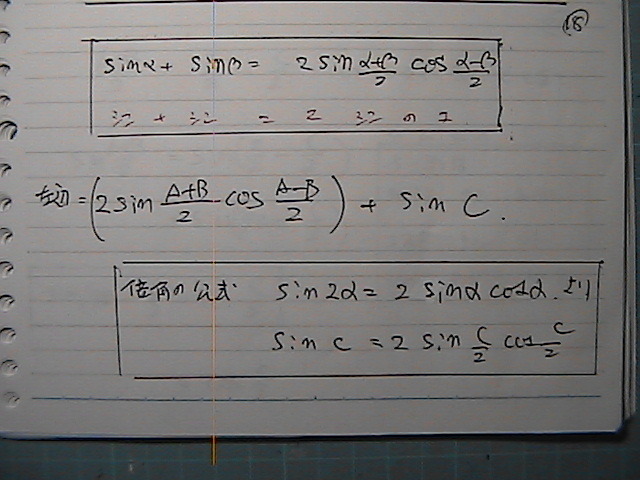 ⑱
sinα + sinβ = 2 sin (α+β)/2 cos (α-β)/2
= 2
左辺 = (2 sin (A+B)/2 cos (A-B)/2) + sin C.
倍角の公式 sin2α = 2 sinα cosα. より
sin C = 2 sin C/2 cos C/2